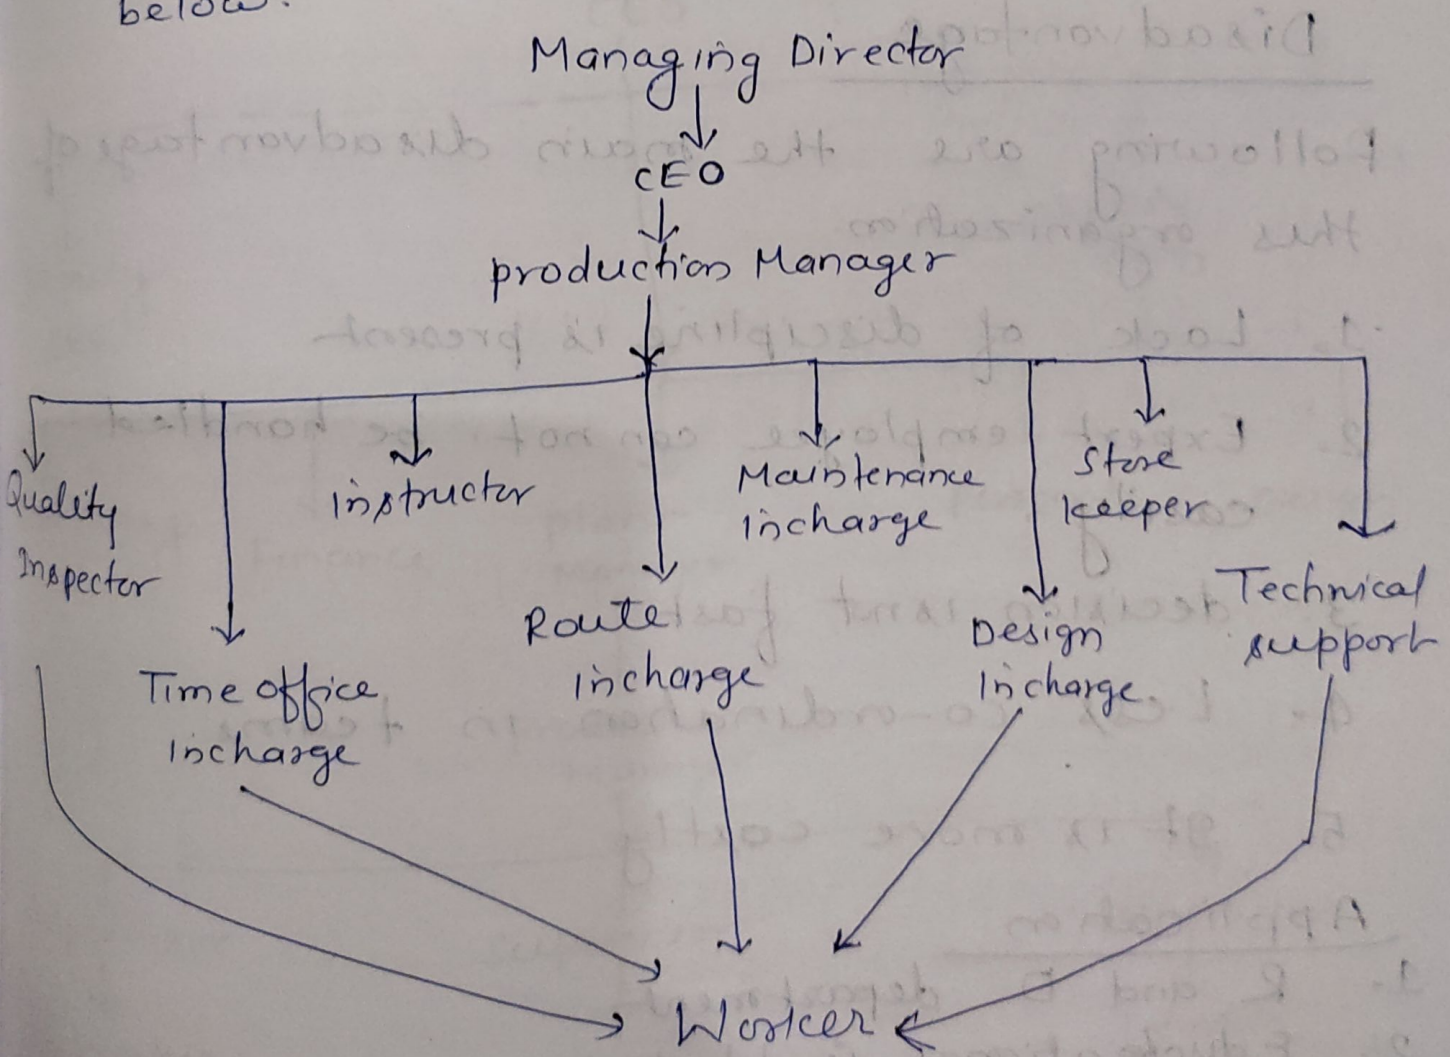 below.
Managing Director
CEO
production Manager
Quality
Inspector
Time office
incharge
instructor
Route
incharge
Maintenance
incharge
Design
incharge
Store
keeper
Technical
support
Worker